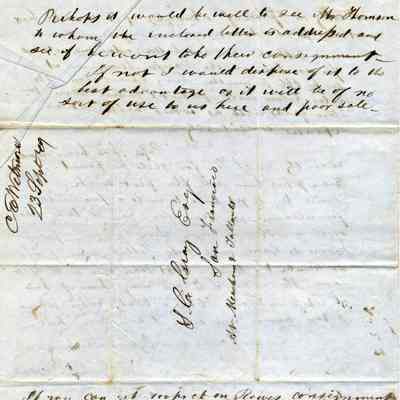 Perhaps it would be well to see Mr Thomson
to whom the inclosed letter is addressed and
see if he wont take their consignment—
If not I would dispose of it to the
best advantage as it will be of no
sort of use to us here and poor sale—
23 Sept 49
Esqr
San Francisco
If you can get on Howes consignment